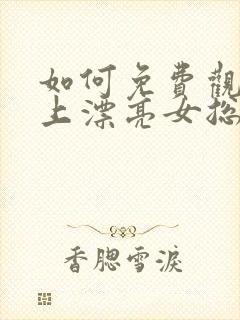 如何免費觀
上漂亮女總
香腮雪淚